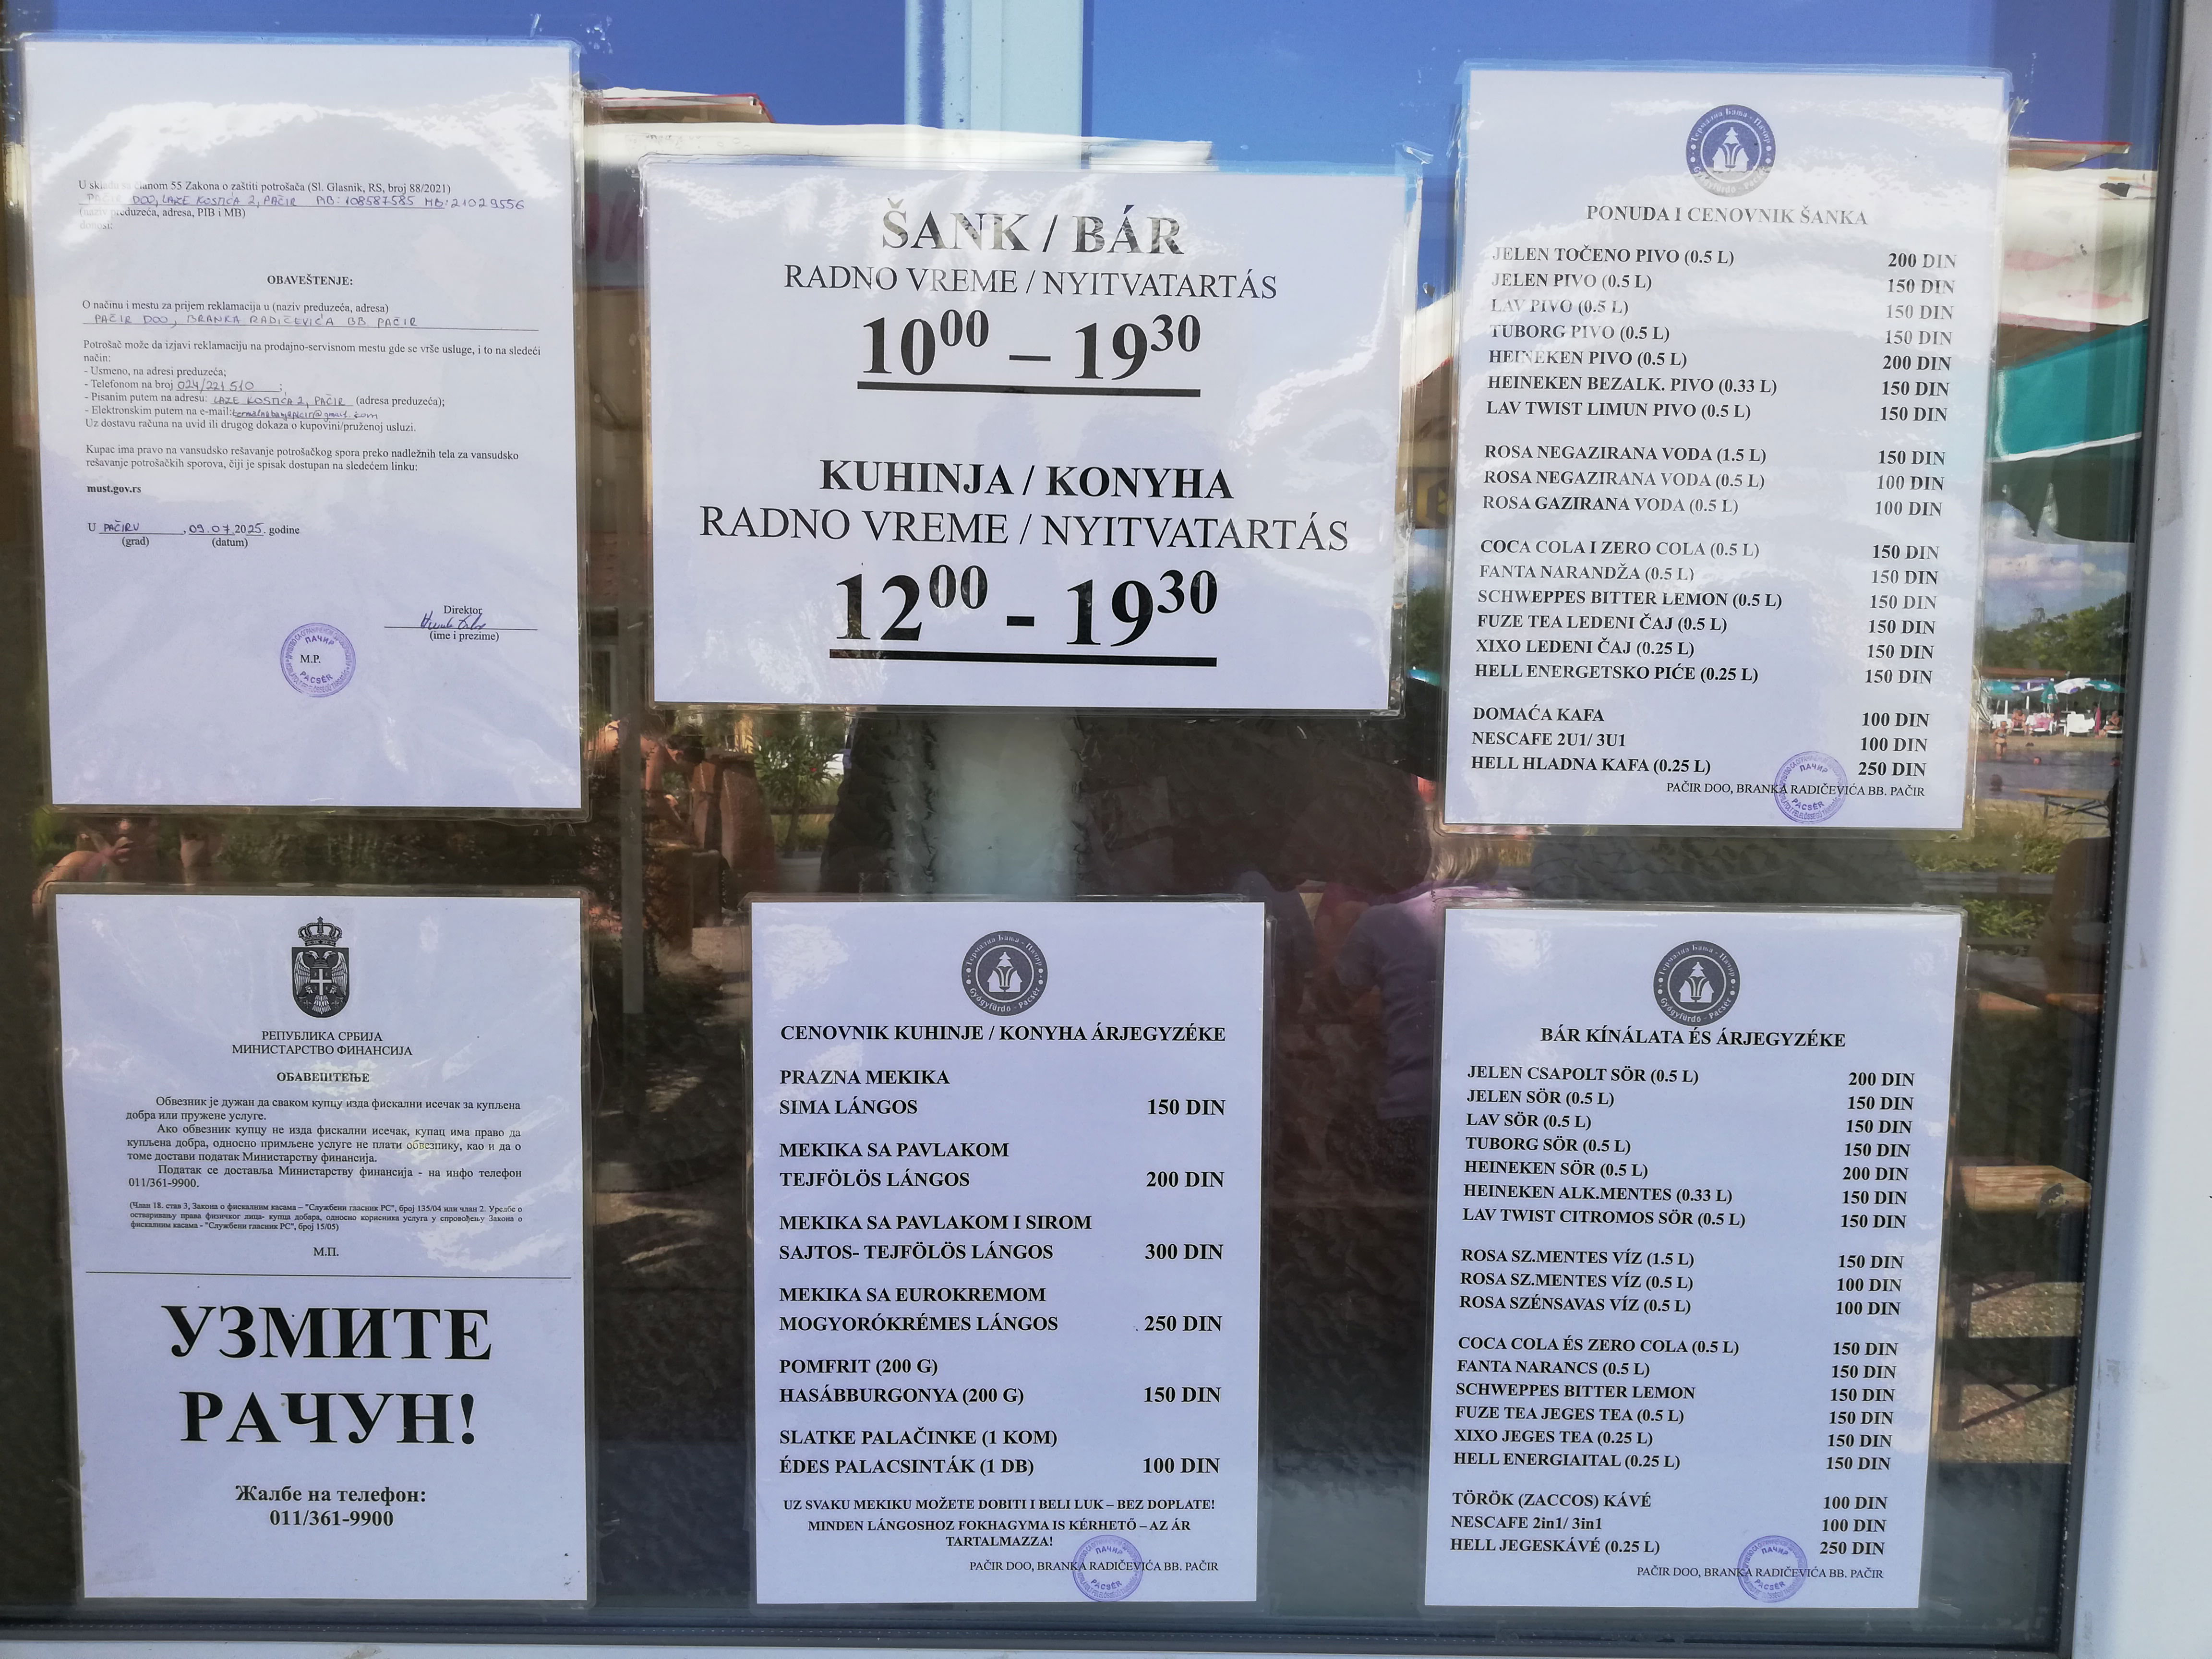 U skladu sa članom 55 Zakona o zaštiti potrošača (Sl. Glasnik, RS, broj 88/2021)
PAČIR DOO, LAZE KOSTIĆA 2, PAČIR PIB: 108587585 MB: 21029556
(naziv preduzeća, adresa, PIB i MB)
donosi:
OBAVEŠTENJE:
O načinu i mestu za prijem reklamacija u (naziv preduzeća, adresa)
PAČIR DOO, BRANKA RADIČEVIĆA BB PAČIR
Potrošač može da izjavi reklamaciju na prodajno-servisnom mestu gde se vrše usluge, i to na sledeći
način:
- Usmeno, na adresi preduzeća;
- Telefonom na broj 024/221 510 ;
- Pisanim putem na adresu: LAZE KOSTIĆA 2, PAČIR (adresa preduzeća);
- Elektronskim putem na e-mail: termalnabanjapacir@gmail.com
Uz dostavu računa na uvid ili drugog dokaza o kupovini/pruženoj usluzi.
Kupac ima pravo na vansudsko rešavanje potrošačkog spora preko nadležnih tela za vansudsko
rešavanje potrošačkih sporova, čiji je spisak dostupan na sledećem linku:
must.gov.rs
U PAČIRU , 09.07.2025. godine
(grad) (datum)
Direktor
(ime i prezime)
ПАЧИР
M.P.
PACSÉR
ŠANK / BÁR
RADNO VREME / NYITVATARTÁS
10⁰⁰ – 19³⁰
KUHINJA / KONYHA
RADNO VREME / NYITVATARTÁS
12⁰⁰ - 19³⁰
Термална Бања - Пачир
Gyógyfürdő - Pacsér
PONUDA I CENOVNIK ŠANKA
JELEN TOČENO PIVO (0.5 L) 200 DIN
JELEN PIVO (0.5 L) 150 DIN
LAV PIVO (0.5 L) 150 DIN
TUBORG PIVO (0.5 L) 150 DIN
HEINEKEN PIVO (0.5 L) 200 DIN
HEINEKEN BEZALK. PIVO (0.33 L) 150 DIN
LAV TWIST LIMUN PIVO (0.5 L) 150 DIN
ROSA NEGAZIRANA VODA (1.5 L) 150 DIN
ROSA NEGAZIRANA VODA (0.5 L) 100 DIN
ROSA GAZIRANA VODA (0.5 L) 100 DIN
COCA COLA I ZERO COLA (0.5 L) 150 DIN
FANTA NARANDŽA (0.5 L) 150 DIN
SCHWEPPES BITTER LEMON (0.5 L) 150 DIN
FUZE TEA LEDENI ČAJ (0.5 L) 150 DIN
XIXO LEDENI ČAJ (0.25 L) 150 DIN
HELL ENERGETSKO PIĆE (0.25 L) 150 DIN
DOMAĆA KAFA 100 DIN
NESCAFE 2U1/ 3U1 100 DIN
HELL HLADNA KAFA (0.25 L) 250 DIN
PAČIR DOO, BRANKA RADIČEVIĆA BB. PAČIR
ПАЧИР
PACSÉR
РЕПУБЛИКА СРБИЈА
МИНИСТАРСТВО ФИНАНСИЈА
ОБАВЕШТЕЊЕ
Обвезник је дужан да сваком купцу изда фискални исечак за купљена
добра или пружене услуге.
Ако обвезник купцу не изда фискални исечак, купац има право да
купљена добра, односно примљене услуге не плати обвезнику, као и да о
томе достави податак Министарству финансија.
Податак се доставља Министарству финансија - на инфо телефон
011/361-9900.
(Члан 18. став 3, Закона о фискалним касама – "Службени гласник РС", број 135/04 или члан 2. Уредбе о
остваривању права физичког лица- купца добара, односно корисника услуга у спровођењу Закона о
фискалним касама - "Службени гласник РС", број 15/05)
М.П.
УЗМИТЕ
РАЧУН!
Жалбе на телефон:
011/361-9900
Термална Бања - Пачир
Gyógyfürdő - Pacsér
CENOVNIK KUHINJE / KONYHA ÁRJEGYZÉKE
PRAZNA MEKIKA
SIMA LÁNGOS 150 DIN
MEKIKA SA PAVLAKOM
TEJFÖLÖS LÁNGOS 200 DIN
MEKIKA SA PAVLAKOM I SIROM
SAJTOS- TEJFÖLÖS LÁNGOS 300 DIN
MEKIKA SA EUROKREMOM
MOGYORÓKRÉMES LÁNGOS 250 DIN
POMFRIT (200 G)
HASÁBBURGONYA (200 G) 150 DIN
SLATKE PALAČINKE (1 KOM)
ÉDES PALACSINTÁK (1 DB) 100 DIN
UZ SVAKU MEKIKU MOŽETE DOBITI I BELI LUK – BEZ DOPLATE!
MINDEN LÁNGOSHOZ FOKHAGYMA IS KÉRHETŐ – AZ ÁR
TARTALMAZZA!
PAČIR DOO, BRANKA RADIČEVIĆA BB. PAČIR
ПАЧИР
PACSÉR
Термална Бања - Пачир
Gyógyfürdő - Pacsér
BÁR KÍNÁLATA ÉS ÁRJEGYZÉKE
JELEN CSAPOLT SÖR (0.5 L) 200 DIN
JELEN SÖR (0.5 L) 150 DIN
LAV SÖR (0.5 L) 150 DIN
TUBORG SÖR (0.5 L) 150 DIN
HEINEKEN SÖR (0.5 L) 200 DIN
HEINEKEN ALK.MENTES (0.33 L) 150 DIN
LAV TWIST CITROMOS SÖR (0.5 L) 150 DIN
ROSA SZ.MENTES VÍZ (1.5 L) 150 DIN
ROSA SZ.MENTES VÍZ (0.5 L) 100 DIN
ROSA SZÉNSAVAS VÍZ (0.5 L) 100 DIN
COCA COLA ÉS ZERO COLA (0.5 L) 150 DIN
FANTA NARANCS (0.5 L) 150 DIN
SCHWEPPES BITTER LEMON 150 DIN
FUZE TEA JEGES TEA (0.5 L) 150 DIN
XIXO JEGES TEA (0.25 L) 150 DIN
HELL ENERGIAITAL (0.25 L) 150 DIN
TÖRÖK (ZACCOS) KÁVÉ 100 DIN
NESCAFE 2in1/ 3in1 100 DIN
HELL JEGESKÁVÉ (0.25 L) 250 DIN
PAČIR DOO, BRANKA RADIČEVIĆA BB. PAČIR
ПАЧИР
PACSÉR